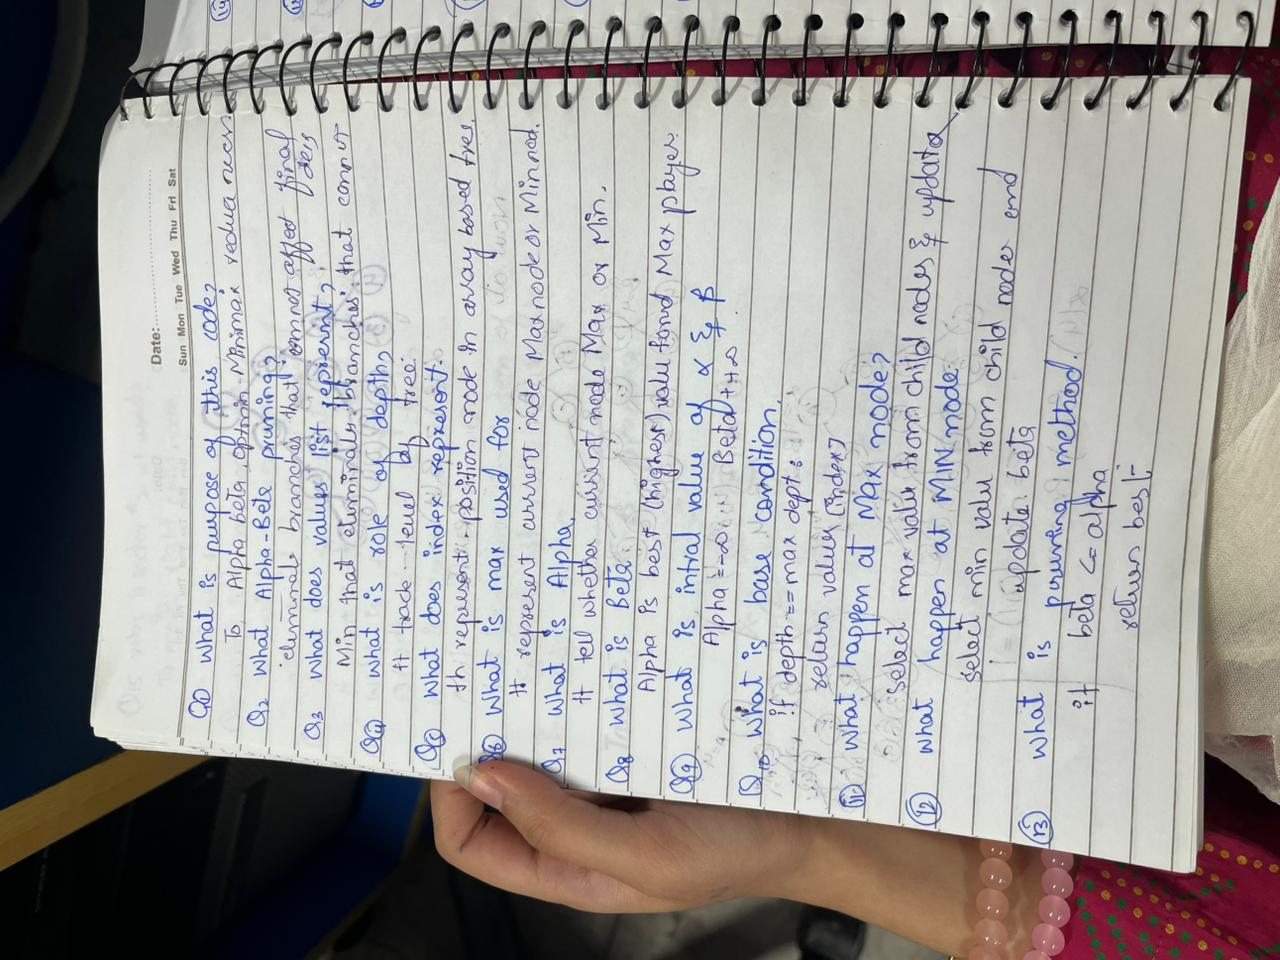 Date:
Sun Mon Tue Wed Thu Fri Sat
Q1 What is purpose of this code?
To Alpha beta, Minimax
Q2 What Alpha-Beta pruning?
branches that cannot affect final
Q3 What does values list represent?
Min that eliminates branches that
Q4 what is role of depth?
It track level of tree.
Q5 what does index represent.
th represent position node in array based tree.
Q6 What is max used for
It represent current node Max node or Min nod.
Q7 What is Alpha.
It tell whether current node Max or Min.
Q8 What is Beta.
Alpha is best (highest) value found Max player.
Q9 What is intial value of α & β
Alpha = -∞ Beta = +∞
Q10 What is base condition.
if depth == max dept:
return values [index]
11 What happen at Max node?
select max value from child nodes & update
12 what happen at MIN node.
select min value from child nodes and
update beta
13 What is method.
if beta <= alpha
return best;